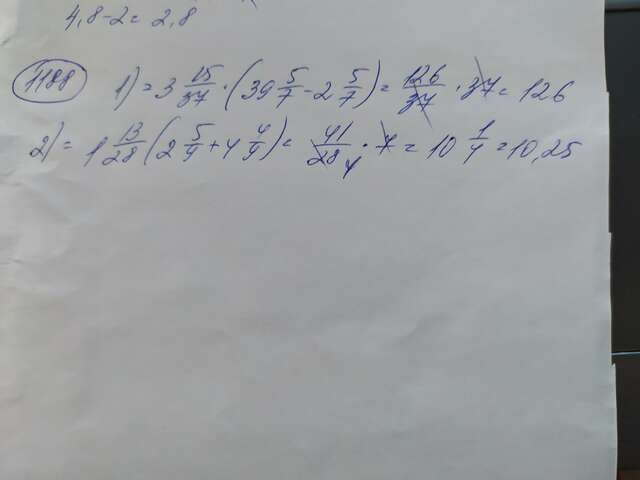 4,8-2=2,8
1188 1) = 3 15/37 · (39 5/7 - 2 5/7) = 126/37 · 37 = 126
2) = 1 13/28 (2 5/9 + 4 4/9) = 41/28 4 · 7 = 10 1/4 = 10,25